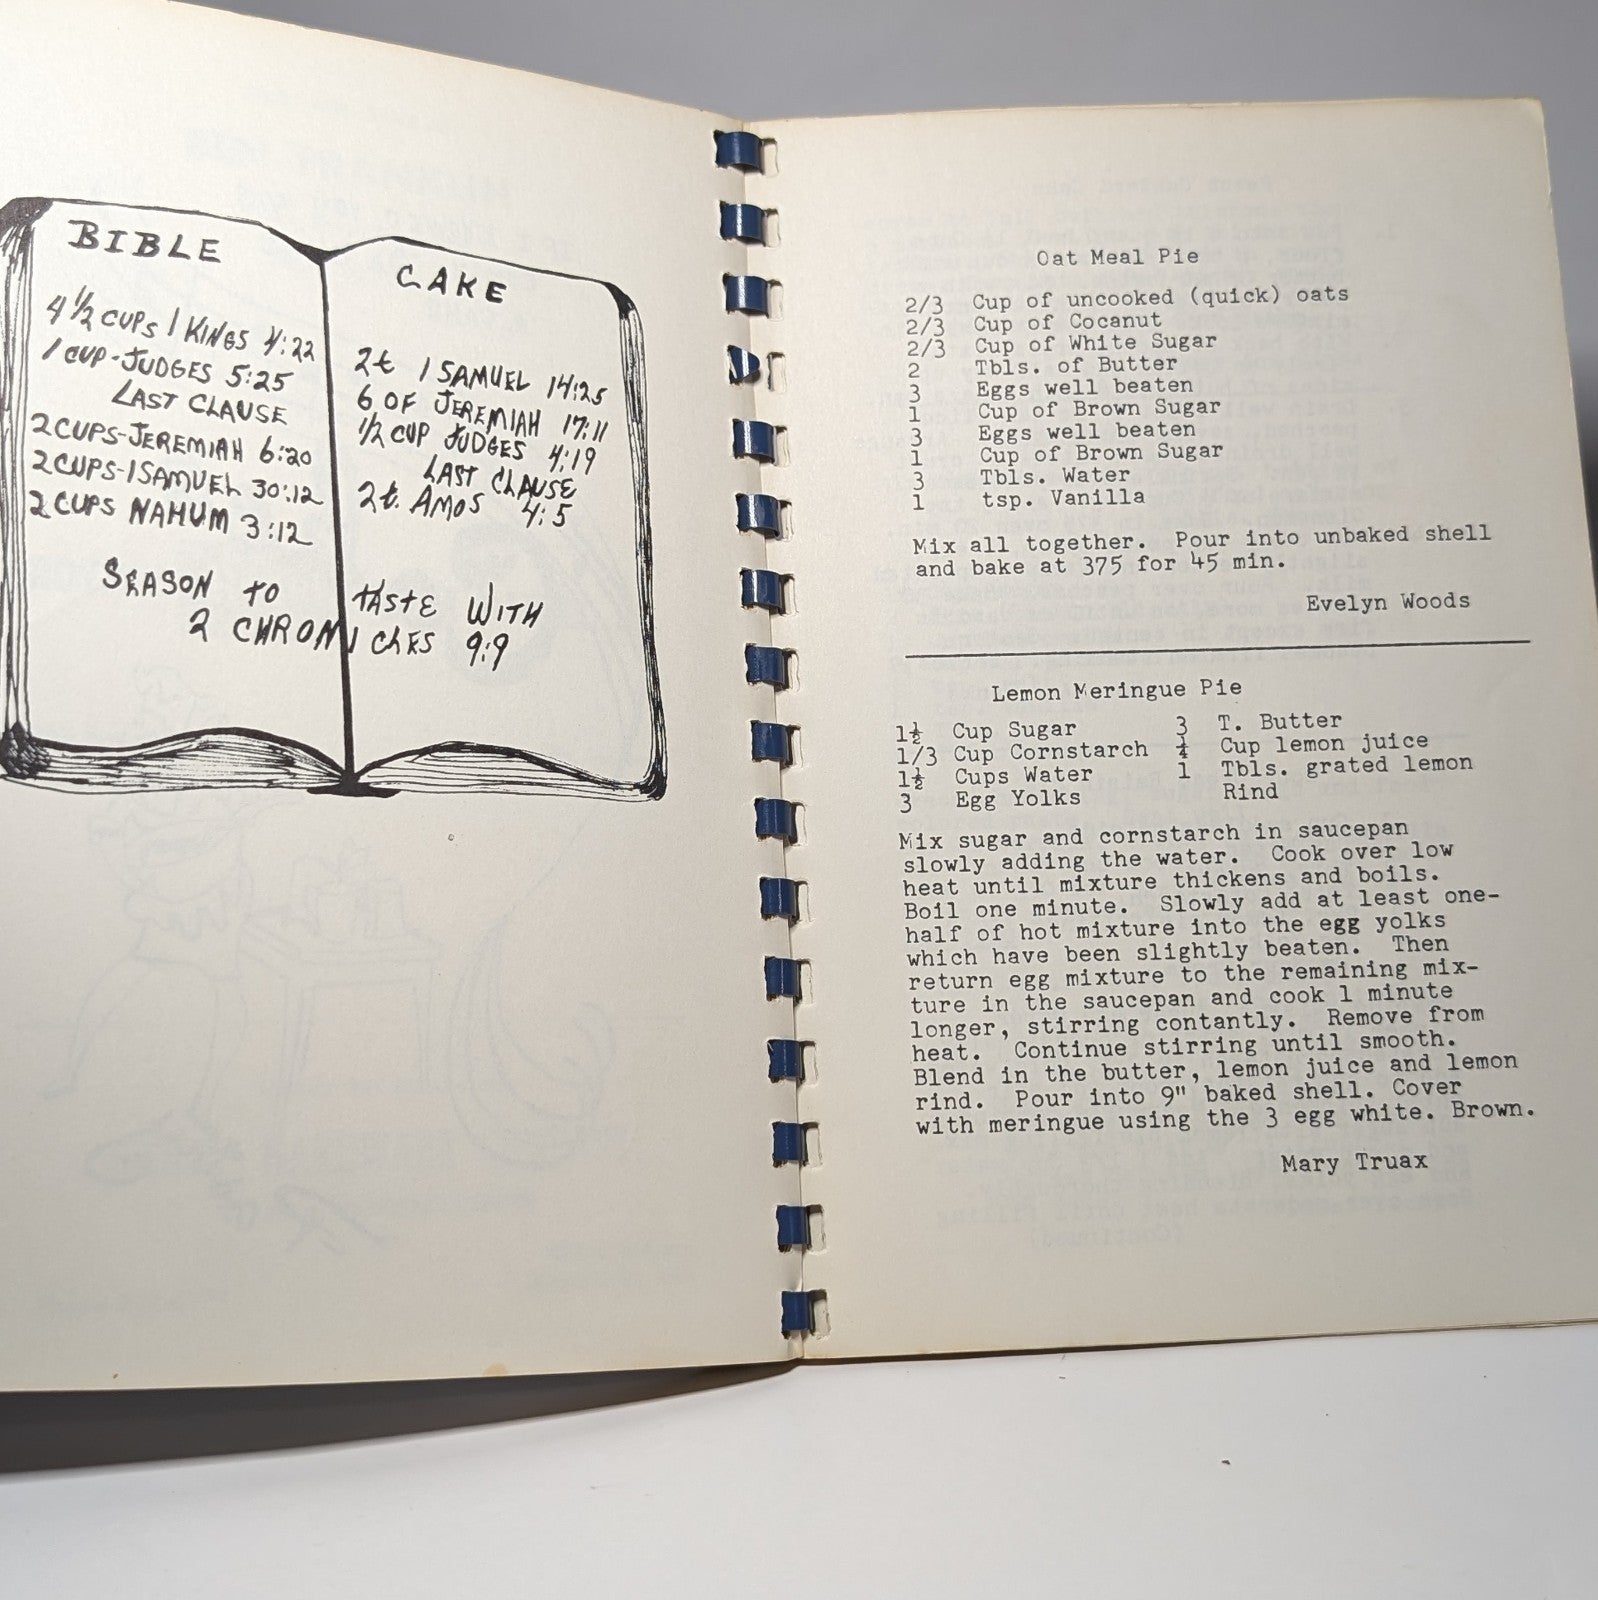 BIBLE
4 1/2 CUPS 1 KINGS 4:22
1 CUP-JUDGES 5:25
LAST CLAUSE
2 CUPS-JEREMIAH 6:20
2 CUPS-1 SAMUEL 30:12
2 CUPS NAHUM 3:12
CAKE
2t 1 SAMUEL 14:25
6 OF JEREMIAH 17:11
1/2 CUP JUDGES 4:19
LAST CLAUSE
2t. AMOS 4:5
SEASON TO TASTE WITH
2 CHRONICLES 9:9
Oat Meal Pie
2/3 Cup of uncooked (quick) oats
2/3 Cup of Cocanut
2/3 Cup of White Sugar
2 Tbls. of Butter
3 Eggs well beaten
1 Cup of Brown Sugar
3 Eggs well beaten
1 Cup of Brown Sugar
3 Tbls. Water
1 tsp. Vanilla
Mix all together. Pour into unbaked shell
and bake at 375 for 45 min.
Evelyn Woods
Lemon Meringue Pie
1½ Cup Sugar 3 T. Butter
1/3 Cup Cornstarch ¼ Cup lemon juice
1½ Cups Water 1 Tbls. grated lemon
3 Egg Yolks Rind
Mix sugar and cornstarch in saucepan
slowly adding the water. Cook over low
heat until mixture thickens and boils.
Boil one minute. Slowly add at least one-
half of hot mixture into the egg yolks
which have been slightly beaten. Then
return egg mixture to the remaining mix-
ture in the saucepan and cook 1 minute
longer, stirring contantly. Remove from
heat. Continue stirring until smooth.
Blend in the butter, lemon juice and lemon
rind. Pour into 9" baked shell. Cover
with meringue using the 3 egg white. Brown.
Mary Truax